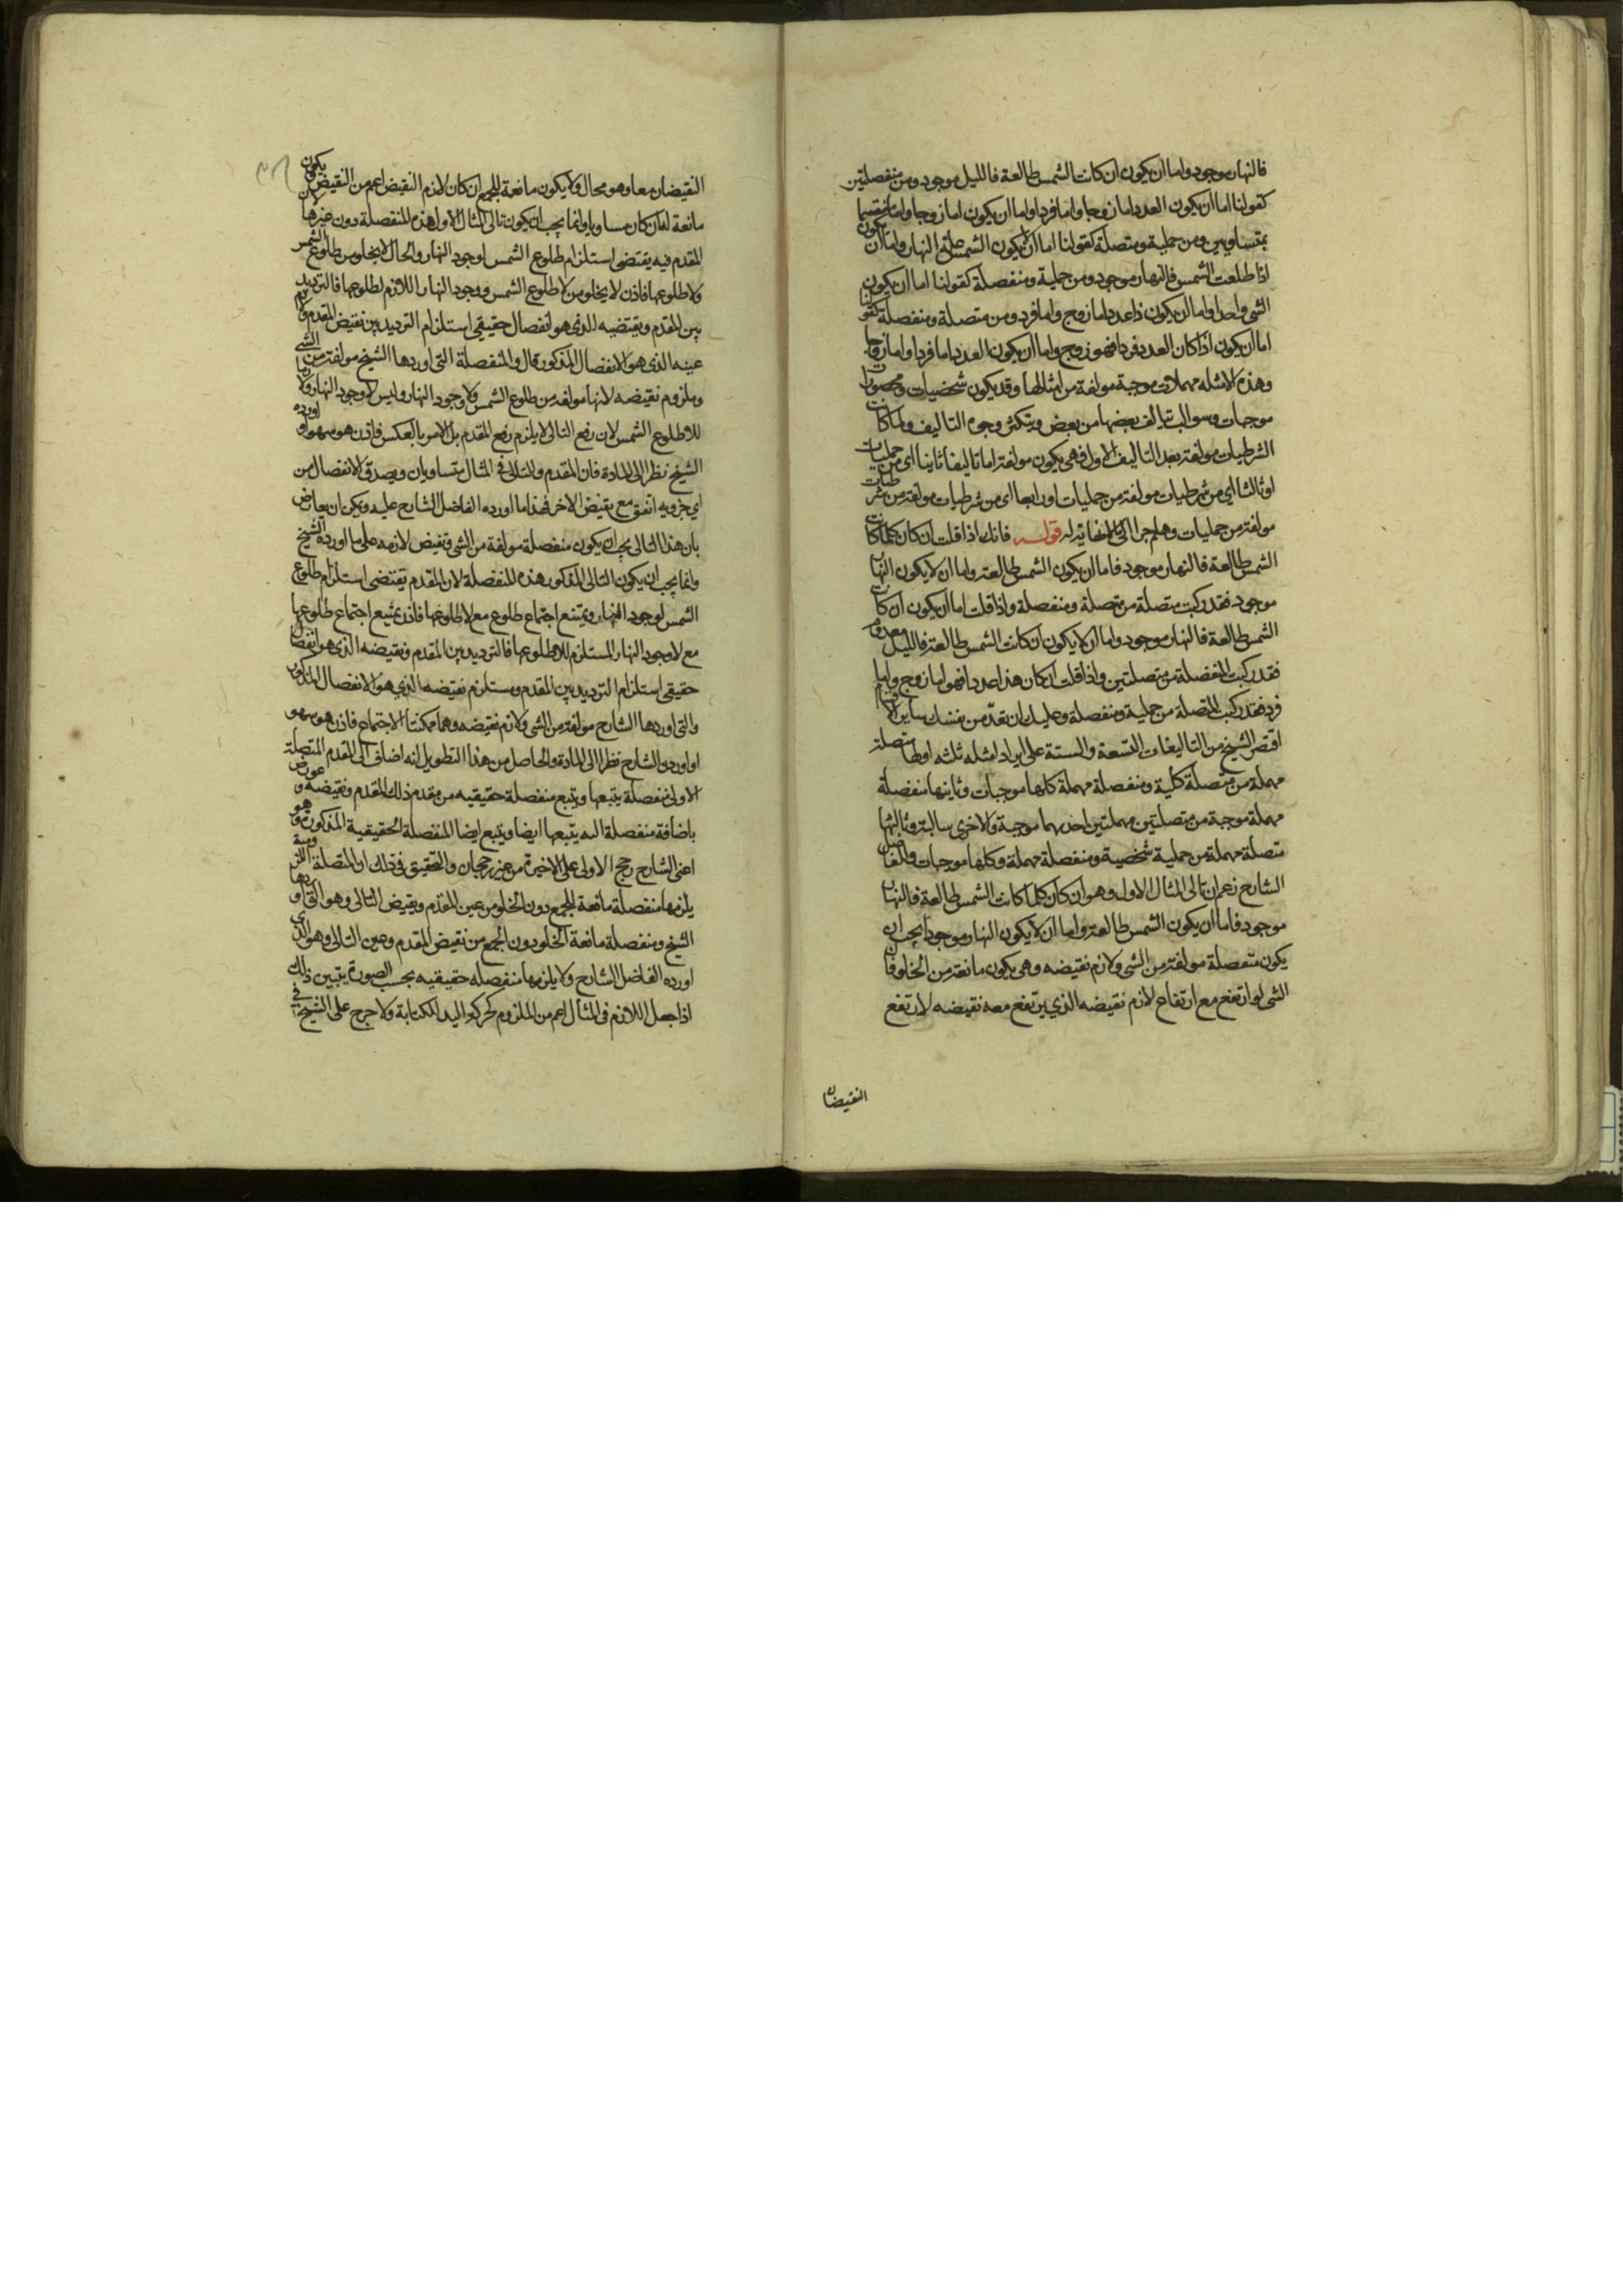 فالنهار موجود واما ان يكون ان كانت الشمس طالعة فالليل موجود ومن منفصلتين
كقولنا اما ان يكون العدد اما زوجا واما فردا واما ان يكون اما زوجا واما منقسما
بمتساويين ومن حملية ومتصلة كقولنا اما ان لا يكون الشمس علة النهار واما ان يكون
اذا طلعت الشمس فالنهار موجود ومن حملية ومنفصلة كقولنا اما ان يكون
الشى واحدا واما ان يكون ذا عدد اما زوج واما فرد ومن متصلة ومنفصلة كقولنا
اما ان يكون اذا كان العدد فردا فهو زوج واما ان يكون العدد اما فردا واما زوجا
وهذه الامثله مهملات موجبة مولفة من امثالها وقد يكون شخصيات ومحصورات
موجبات وسوالب تتالف بعضها من بعض ويتكثر وجوه التاليف ولما كانت
الشرطيات مولفة بعد التاليف الاول فهى يكون مولفة اما تاليفا ثانيا اى من حمليات
او ثالثا اى من شرطيات مولفة من حمليات او رابعا اى من شرطيات مولفة من شرطيات
مولفة من حمليات وهلم جرا الى ما لا نهاية له قوله فانك اذا قلت ان كان كلما كانت
الشمس طالعة فالنهار موجود فاما ان يكون الشمس طالعة واما ان لا يكون النهار
موجود فقد ركبت متصلة من متصلة ومنفصلة واذا قلت اما ان يكون ان كانت
الشمس طالعة فالنهار موجود واما ان لا يكون ان كانت الشمس طالعة فالليل معدوم
فقد ركبت المنفصلة من متصلتين واذا قلت ان كان هذا عددا فهو اما زوج واما
فرد فقد ركبت المتصلة من حملية ومنفصلة وعليك ان تعد من نفسك ساير الاقسام
اقتصر الشيخ من التاليفات التسعة والستة على ايراد امثله ثلثه اولها متصلة
مهملة من متصلة كلية ومنفصلة مهملة كلها موجبات وثانيها منفصلة
مهملة موجبة من متصلتين مهملتين احديهما موجبة والاخرى سالبة وثالثها
متصلة مهملة من حملية شخصية ومنفصلة مهملة وكلها موجبات والفاضل
الشارح زعم ان تالى المثال الاول وهو ان كان كلما كانت الشمس طالعة فالنهار
موجود فاما ان يكون الشمس طالعة واما ان لا يكون النهار موجودا يجب ان
يكون منفصلة مولفة من الشى ولازم نقيضه وهى يكون مانعة من الخلو فان
الشى لو ارتفع مع ارتفاع لازم نقيضه الذى يرتفع معه نقيضه لارتفع
النقيضان
النقيضان معا وهو محال ولا يكون مانعة للجمع ان كان لازم النقيض اعم من النقيض ويكون
مانعة له ان كان مساويا وانما يجب ان يكون تالى المثال الاول هذه المنفصلة دون غيرها لان
المقدم فيه يقتضى استلزام طلوع الشمس لوجود النهار والحال لا يخلو من طلوع الشمس
ولا طلوعها فاذن لا يخلو من لا طلوع الشمس ووجود النهار اللازم لطلوعها فالترديد
بين المقدم ونقيضه الذى هو انفصال حقيقى استلزام الترديد بين نقيض المقدم ولازم
عينه الذى هو الانفصال المذكور قال والمنفصلة التى اوردها الشيخ مولفة من الشى
وملزوم نقيضه لانها مولفة من طلوع الشمس ولا وجود النهار وليس لا وجود النهار لازما
للاطلوع الشمس لان رفع التالى لا يلزم رفع المقدم بل الامر بالعكس فاذن هو سهو او اورده
الشيخ نظرا الى المادة فان المقدم والتالى فى المثال متساويان ويصدق الانفصال من
اى جزويه اتفق مع نقيض الاخر فهذا ما اورده الفاضل الشارح عليه ويمكن ان يعارض
بان هذا التالى يجب ان يكون منفصلة مولفة من الشى ونقيض لازمه على ما اورده الشيخ
وانما يجب ان يكون التالى المذكور هذه المنفصلة لان المقدم يقتضى استلزام طلوع
الشمس لوجود النهار ويمتنع اجتماع طلوع مع لا طلوعها فاذن يمتنع اجتماع طلوعها
مع لا وجود النهار المستلزم للاطلوعها فالترديد بين المقدم ونقيضه الذى هو انفصال
حقيقى استلزام الترديد بين المقدم ومستلزم نقيضه الذى هو الانفصال المذكور
والتى اوردها الشارح مولفة من الشى ولازم نقيضه وهما ممكنتا الاجتماع فاذن هو سهو
او اورده الشارح نظرا الى المادة والحاصل من هذا التطويل انه اضاف الى المقدم المتصلة
الاولى منفصلة يتبعها ويتبع منفصلة حقيقيه من مقدم ذلك المقدم ونقيضه وعورض
باضافة منفصلة اليه يتبعها ايضا ويتبع ايضا المنفصلة الحقيقية المذكورة وهو
اعنى الشارح رجح الاولى على الاخيرة من غير رجحان والتحقيق فى ذلك ان المتصلة اللزومية
يلزمها منفصلة مانعة للجمع دون الخلو من عين المقدم ونقيض التالى وهو التى اوردها
الشيخ ومنفصلة مانعة الخلو دون الجمع من نقيض المقدم وعين التالى وهو الذى
اورده الفاضل الشارح ولا يلزمها منفصله حقيقيه بحسب الصورة يتبين ذلك
اذا جعل اللازم فى المثال اعم من الملزوم كحركة اليد للكتابة ولا حرج على الشيخ فى